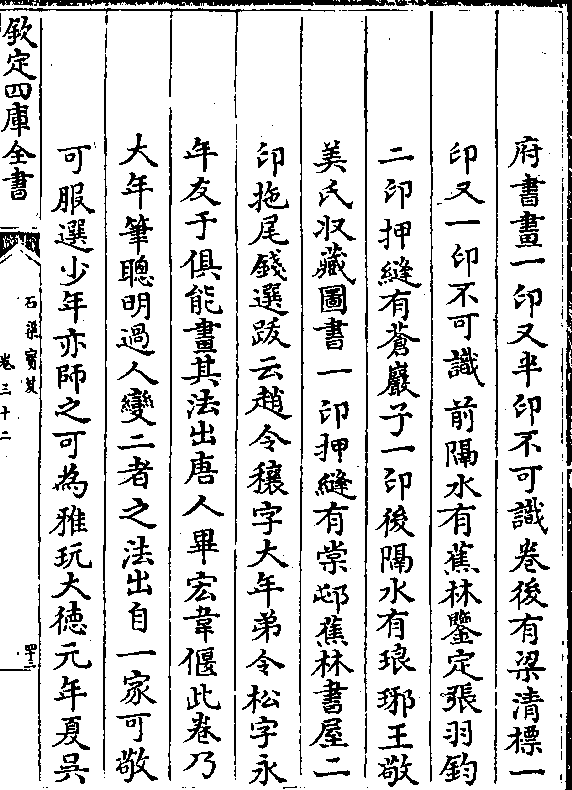 府書畫一印又半印不可識卷後有梁清標一
印又一印不可識前隔水有蕉林鑒定張羽鈞
二印押縫有蒼巖子一印後隔水有琅琊王敬
美氏収藏圖書一印押縫有棠邨蕉林書屋二
印拖尾錢選跋云趙令穰字大年弟令松字永
年友于俱能畫其法出唐人畢宏韋偃此卷乃
大年筆聰明過人變二者之法出自一家可敬
可服選少年亦師之可為雅玩大徳元年夏吳
欽定四庫全書
石渠寳笈
卷三十二
四十三